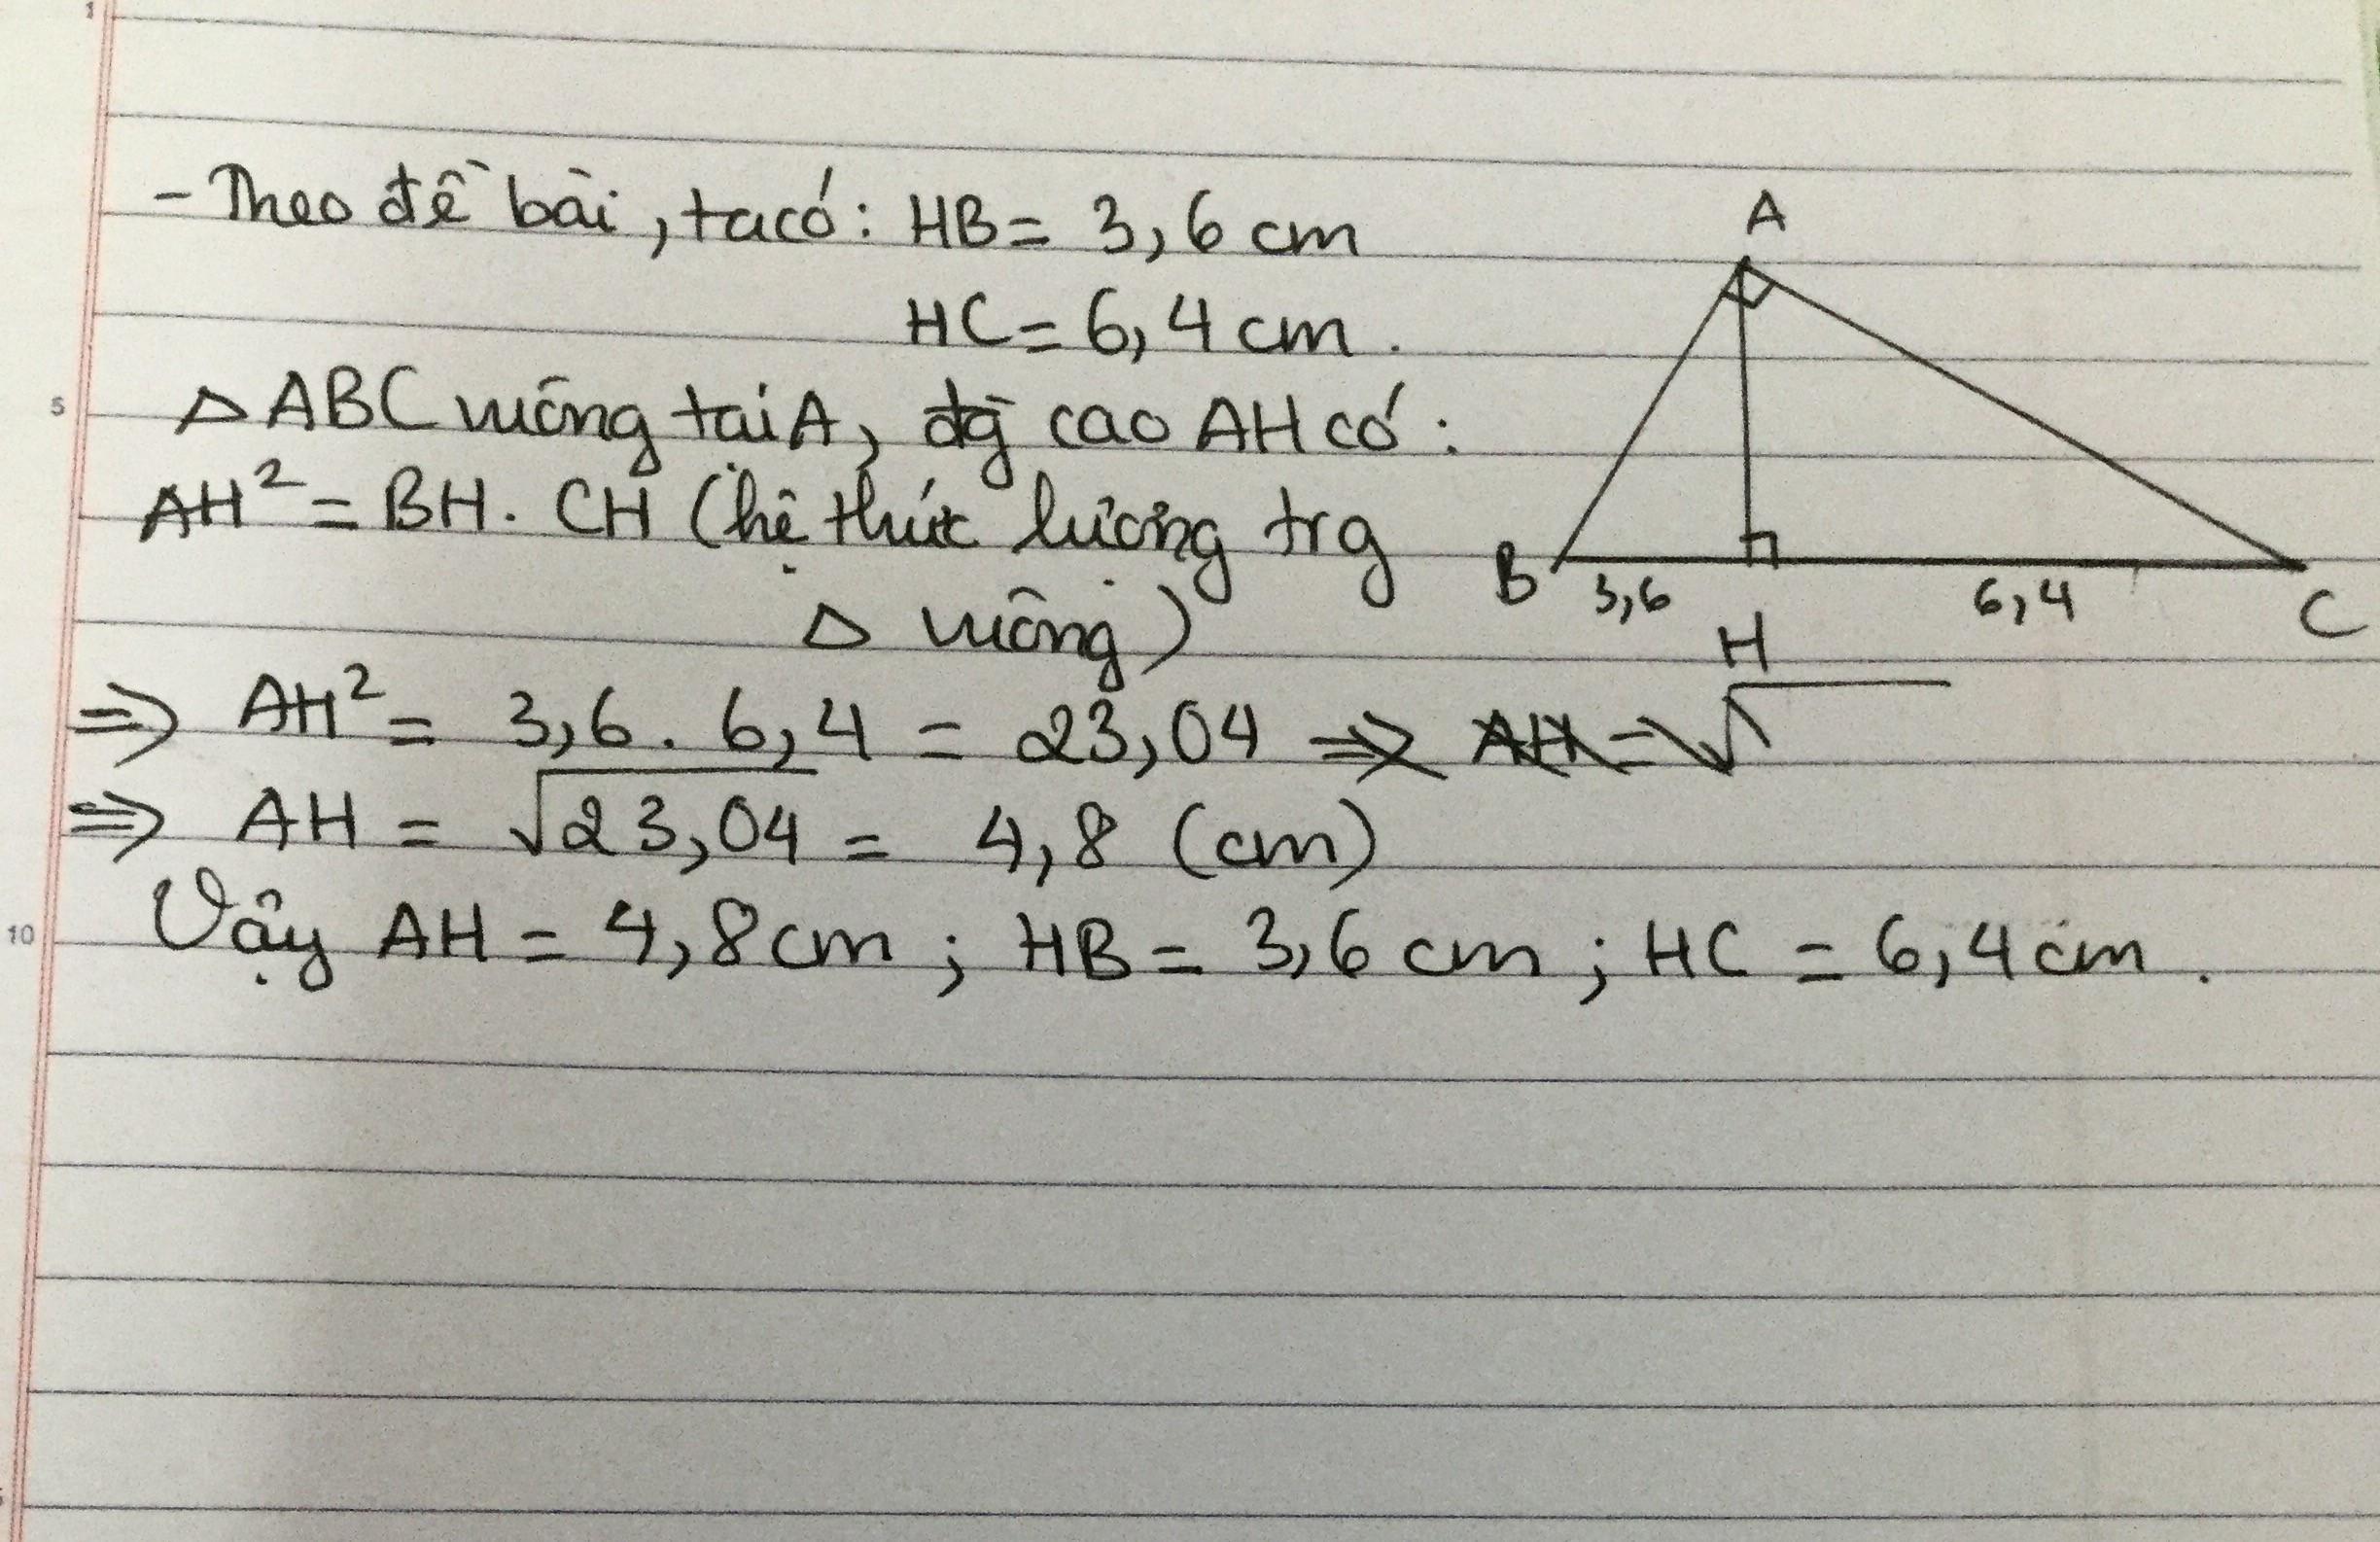 - Theo đề bài, ta có: HB = 3,6 cm
HC = 6,4 cm.
△ ABC vuông tại A, đg cao AH có:
AH² = BH. CH (hệ thức lượng trg
△ vuông)
⇒ AH² = 3,6. 6,4 = 23,04 ⇒ AH = √
⇒ AH = √23,04 = 4,8 (cm)
Vậy AH = 4,8cm; HB = 3,6 cm; HC = 6,4 cm.
A
B
3,6
6,4
C
H
1
5
10